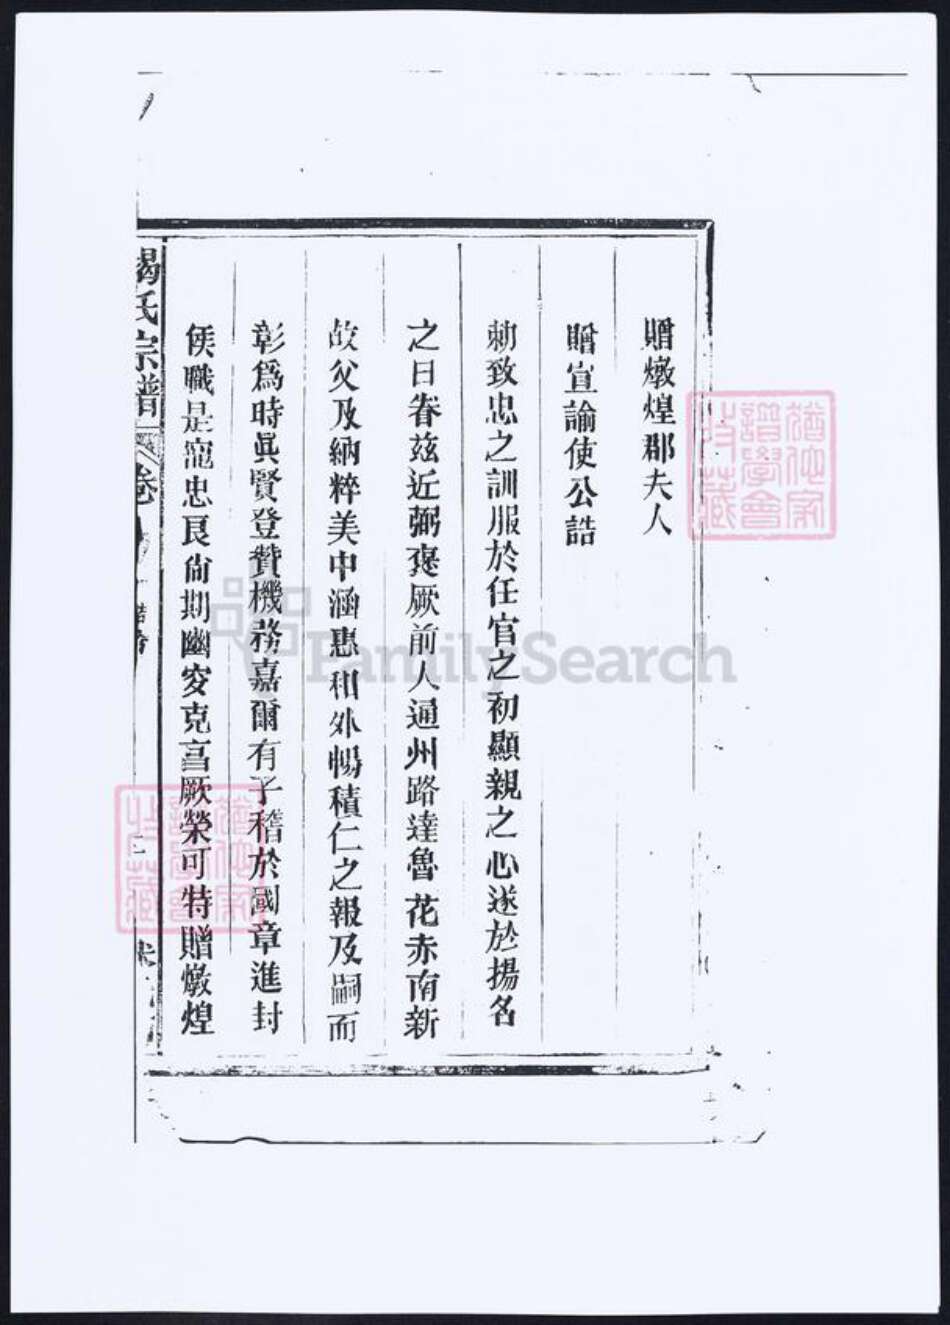 贈燉煌郡夫人
贈宣諭使公誥
勅致忠之訓服於任官之初顯親之心遂於揚名
之日眷茲近弼褒厥前人通州路達魯花赤南新
故父及納粹美中涵惠和外暢積仁之報及嗣而
彰爲時眞賢登贊機務嘉爾有子稽於國章進封
侯職是寵忠良尙期幽穸克亯厥榮可特贈燉煌
氏宗譜
卷
FamilySearch
猶他家
譜學會
收藏
猶他家
譜學會
收藏